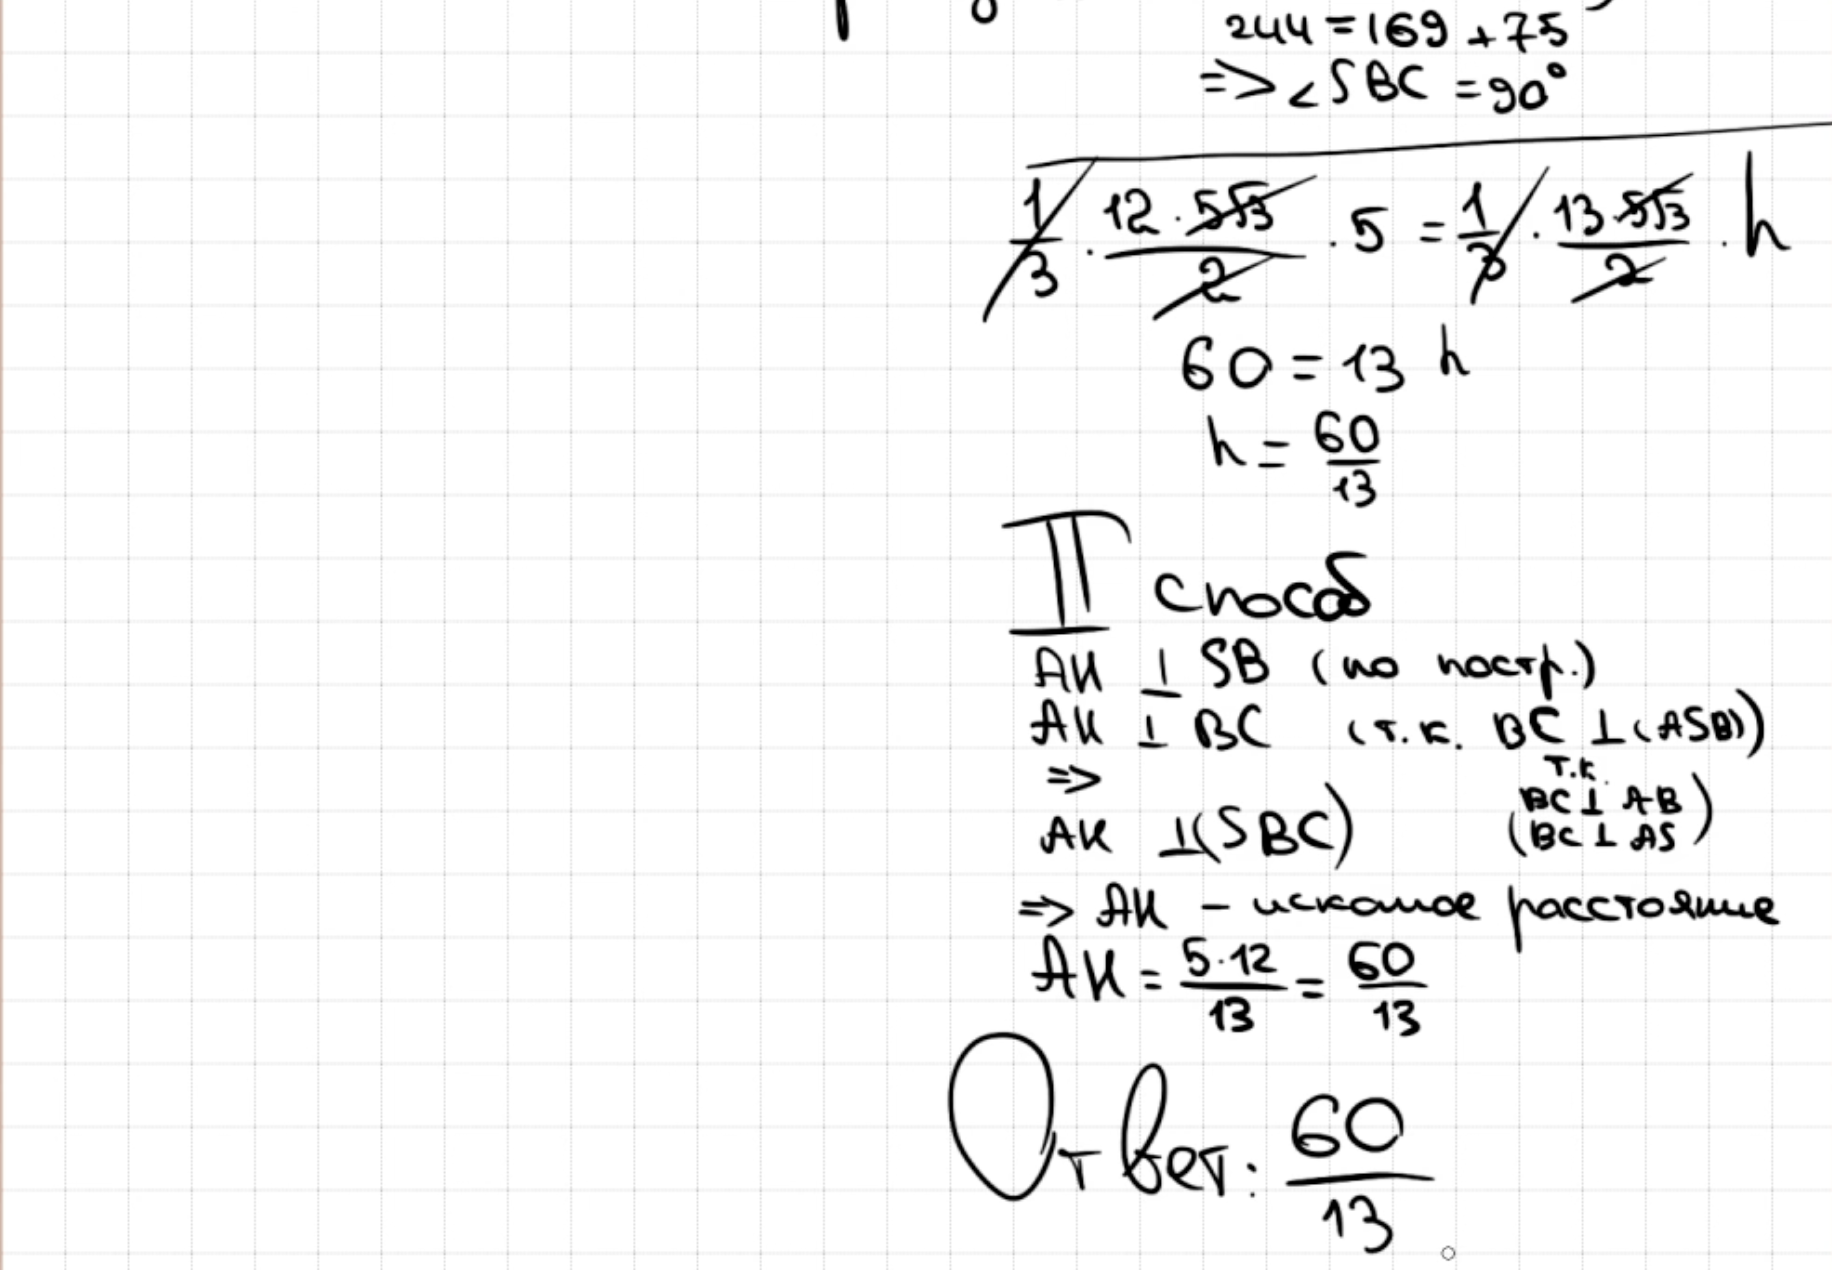 244 = 169 + 75
=> ∠SBC = 90°
1/3 · 12·5√3/2 · 5 = 1/3 · 13·5√3/2 · h
60 = 13 h
h = 60/13
II способ
AK ⊥ SB (по постр.)
AK ⊥ BC (т.к. BC ⊥ (ASB))
=>
т.к.
AK ⊥ (SBC) (BC ⊥ AB
BC ⊥ AS)
=> AK – искомое расстояние
AK = 5·12/13 = 60/13
Ответ: 60/13